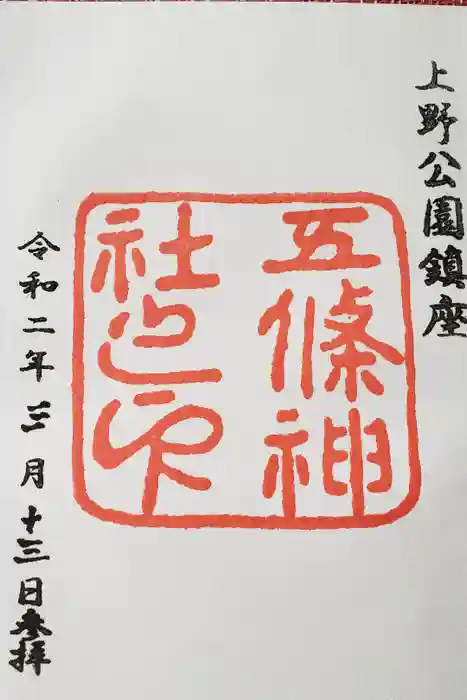 上野公園鎮座
五條神
社之印
令和二年三月十三日参拝